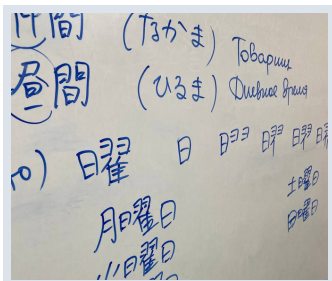 仲間 (なかま) Товарищ
昼間 (ひるま) Дневное время
曜 日 日ヨヨ
土曜日
月曜日 日曜日
火曜日